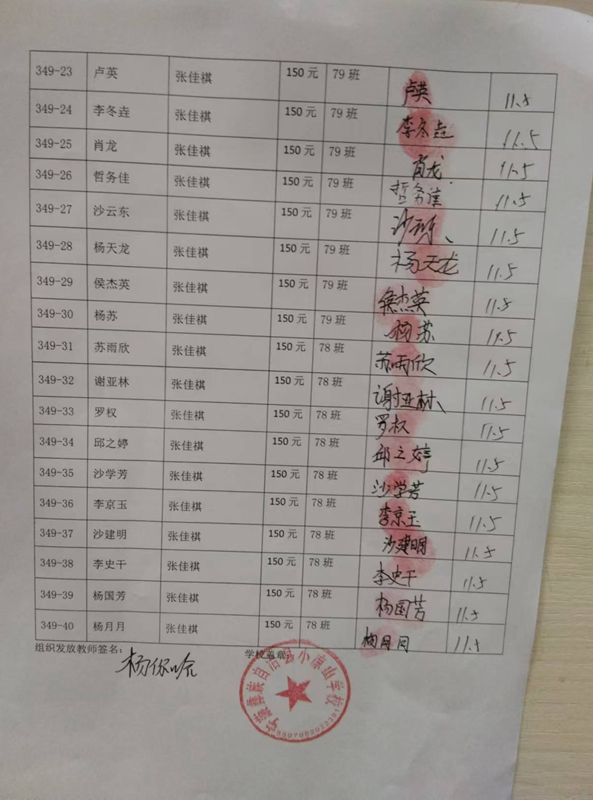 349-23 卢英 张佳祺 150 元 79 班 卢英 11.5
349-24 李冬垚 张佳祺 150 元 79 班 李冬垚 11.5
349-25 肖龙 张佳祺 150 元 79 班 肖龙 11.5
349-26 哲务佳 张佳祺 150 元 79 班 哲务佳 11.5
349-27 沙云东 张佳祺 150 元 79 班 沙云东 11.5
349-28 杨天龙 张佳祺 150 元 79 班 杨天龙 11.5
349-29 侯杰英 张佳祺 150 元 79 班 侯杰英 11.5
349-30 杨苏 张佳祺 150 元 79 班 杨苏 11.5
349-31 苏雨欣 张佳祺 150 元 78 班 苏雨欣 11.5
349-32 谢亚林 张佳祺 150 元 78 班 谢亚林 11.5
349-33 罗权 张佳祺 150 元 78 班 罗权 11.5
349-34 邱之婷 张佳祺 150 元 78 班 邱之婷 11.5
349-35 沙学芳 张佳祺 150 元 78 班 沙学芳 11.5
349-36 李京玉 张佳祺 150 元 78 班 李京玉 11.5
349-37 沙建明 张佳祺 150 元 78 班 沙建明 11.5
349-38 李史干 张佳祺 150 元 78 班 李史干 11.5
349-39 杨国芳 张佳祺 150 元 78 班 杨国芳 11.5
349-40 杨月月 张佳祺 150 元 78 班 杨月月 11.5
组织发放教师签名： 学校盖章：
宁蒗彝族自治县小凉山学校